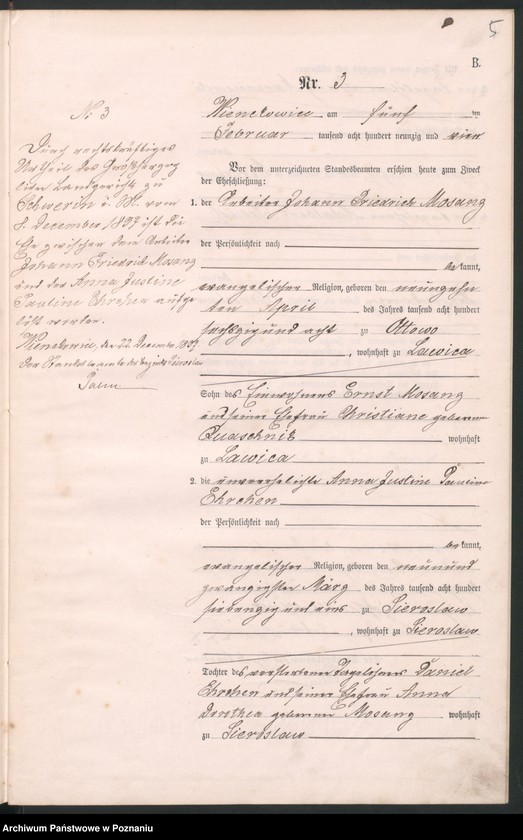 5
B.
Nr. 3
Wienckowice am fünf ten
Februar tausend acht hundert neunzig und vier
Vor dem unterzeichneten Standesbeamten erschien heute zum Zweck
der Eheschließung:
1. der Arbeiter Johann Friedrich Mosang
der Persönlichkeit nach
bekannt,
evangelischer Religion, geboren den neunzehn
ten April des Jahres tausend acht hundert
sechszig und acht zu Ottowo
, wohnhaft zu Lawica
Sohn des Einwohners Ernst Mosang
und seiner Ehefrau Christiane geborenen
wohnhaft
zu Lawica
2. die unverehelichte Anna Justine Pauline
Ehrchen
der Persönlichkeit nach
bekannt,
evangelischer Religion, geboren den neunund
zwanzigsten März des Jahres tausend acht hundert
siebenzig und eins zu Sieroslaw
, wohnhaft zu Sieroslaw
Tochter des verstorbenen Tagelöhners Daniel
Ehrchen und seiner Ehefrau Anna
Dorothea geborenen Mosang wohnhaft
zu Sieroslaw
No 3
Durch rechtskräftiges
Urtheil des Großherzog
lichen Landgerichts zu
Schwerin i. M. vom
8. December 1897 ist die
Ehe zwischen dem Arbeiter
Johann Friedrich Mosang
und der Anna Justine
Pauline Ehrchen aufge
löst worden.
Wienckowice, den 22. December 1897
Der Standesbeamte des Bezirks Sieroslaw
Archiwum Państwowe w Poznaniu